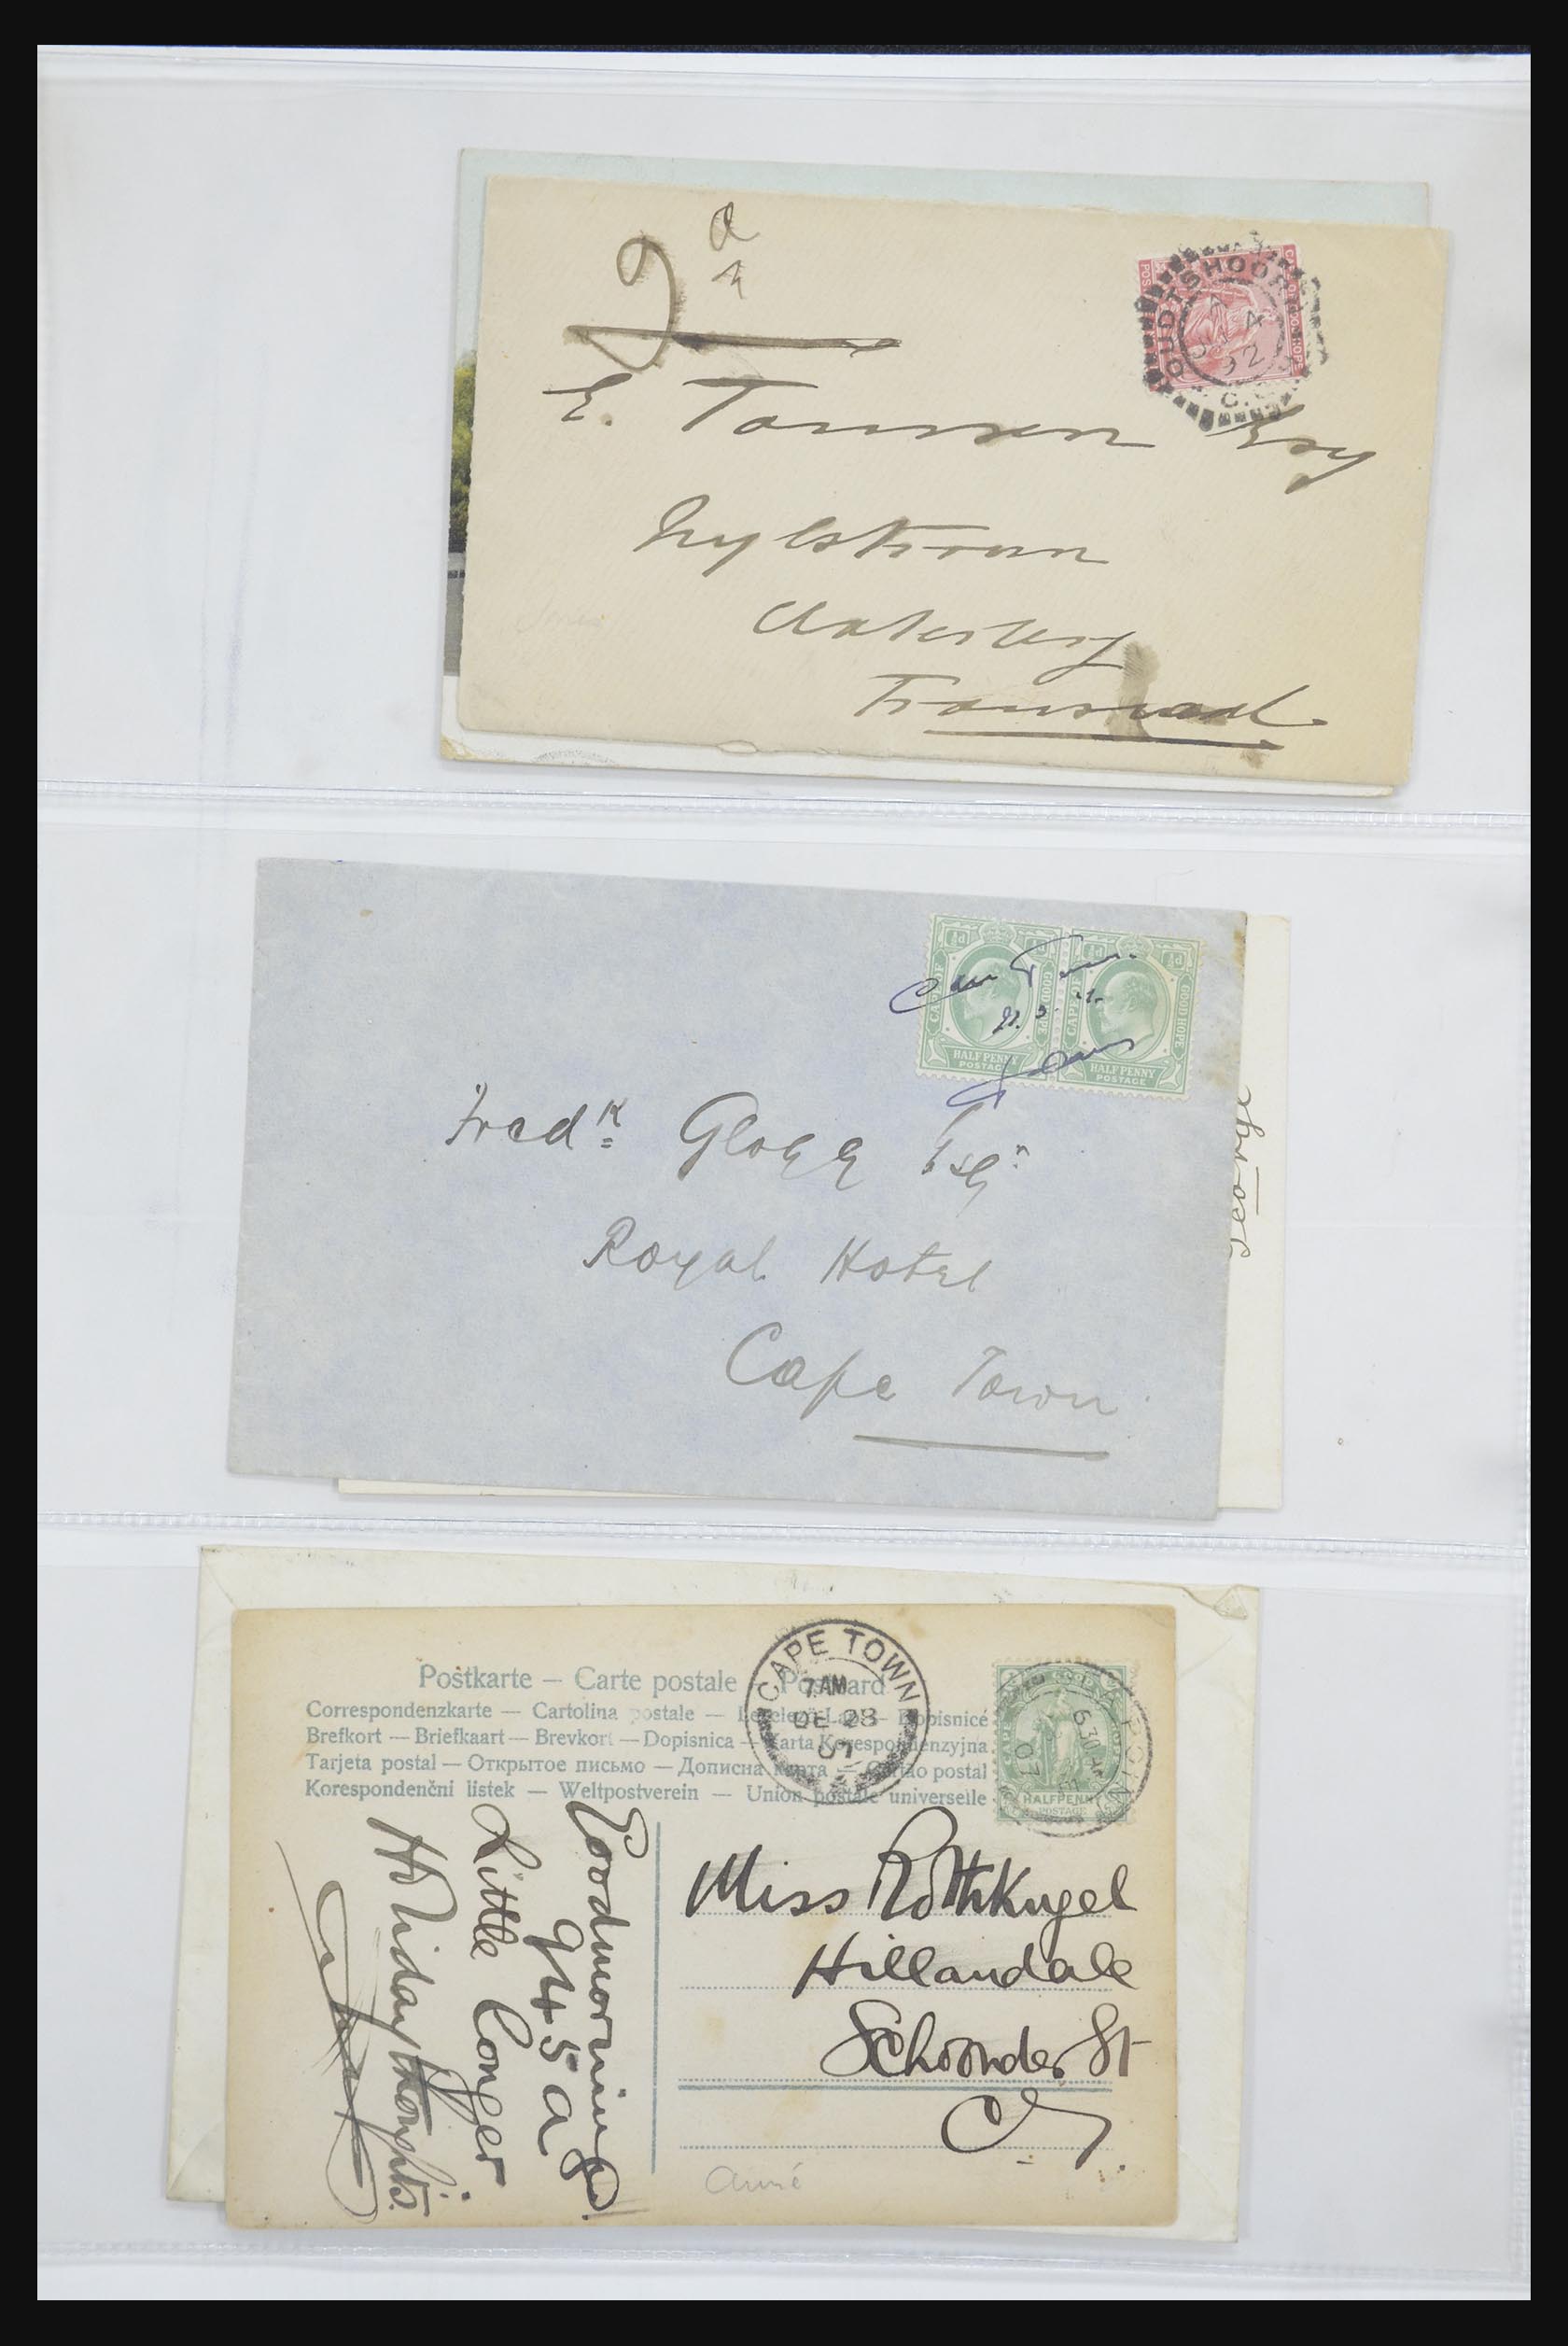 2
E. Tamsen Esq
Nylstroom
Waterberg
Transvaal
OUDTSHOORN
CAPE OF GOOD HOPE
Cape Town
CAPE OF GOOD HOPE
HALF PENNY
POSTAGE
CAPE OF GOOD HOPE
HALF PENNY
POSTAGE
Fredk Glogg Esqr
Royal Hotel
Cape Town
George
Postkarte – Carte postale – Postcard
Correspondenzkarte — Cartolina postale — Levelező-Lap — Dopisnicé
Brefkort — Briefkaart — Brevkort — Dopisnica — Karta Korespondenzyjna
Tarjeta postal — Открытое письмо — Дописна карта — Cartão postal
Korespondenčni listek — Weltpostverein — Union postale universelle
CAPE TOWN
7 AM
DE 23
07
6 30 AM
07
HALFPENNY
POSTAGE
Goodmorning!
945 a
Little Conger
Holiday thoughts.
Miss Rothkugel
Hillandale
Schoonder St
C.T.